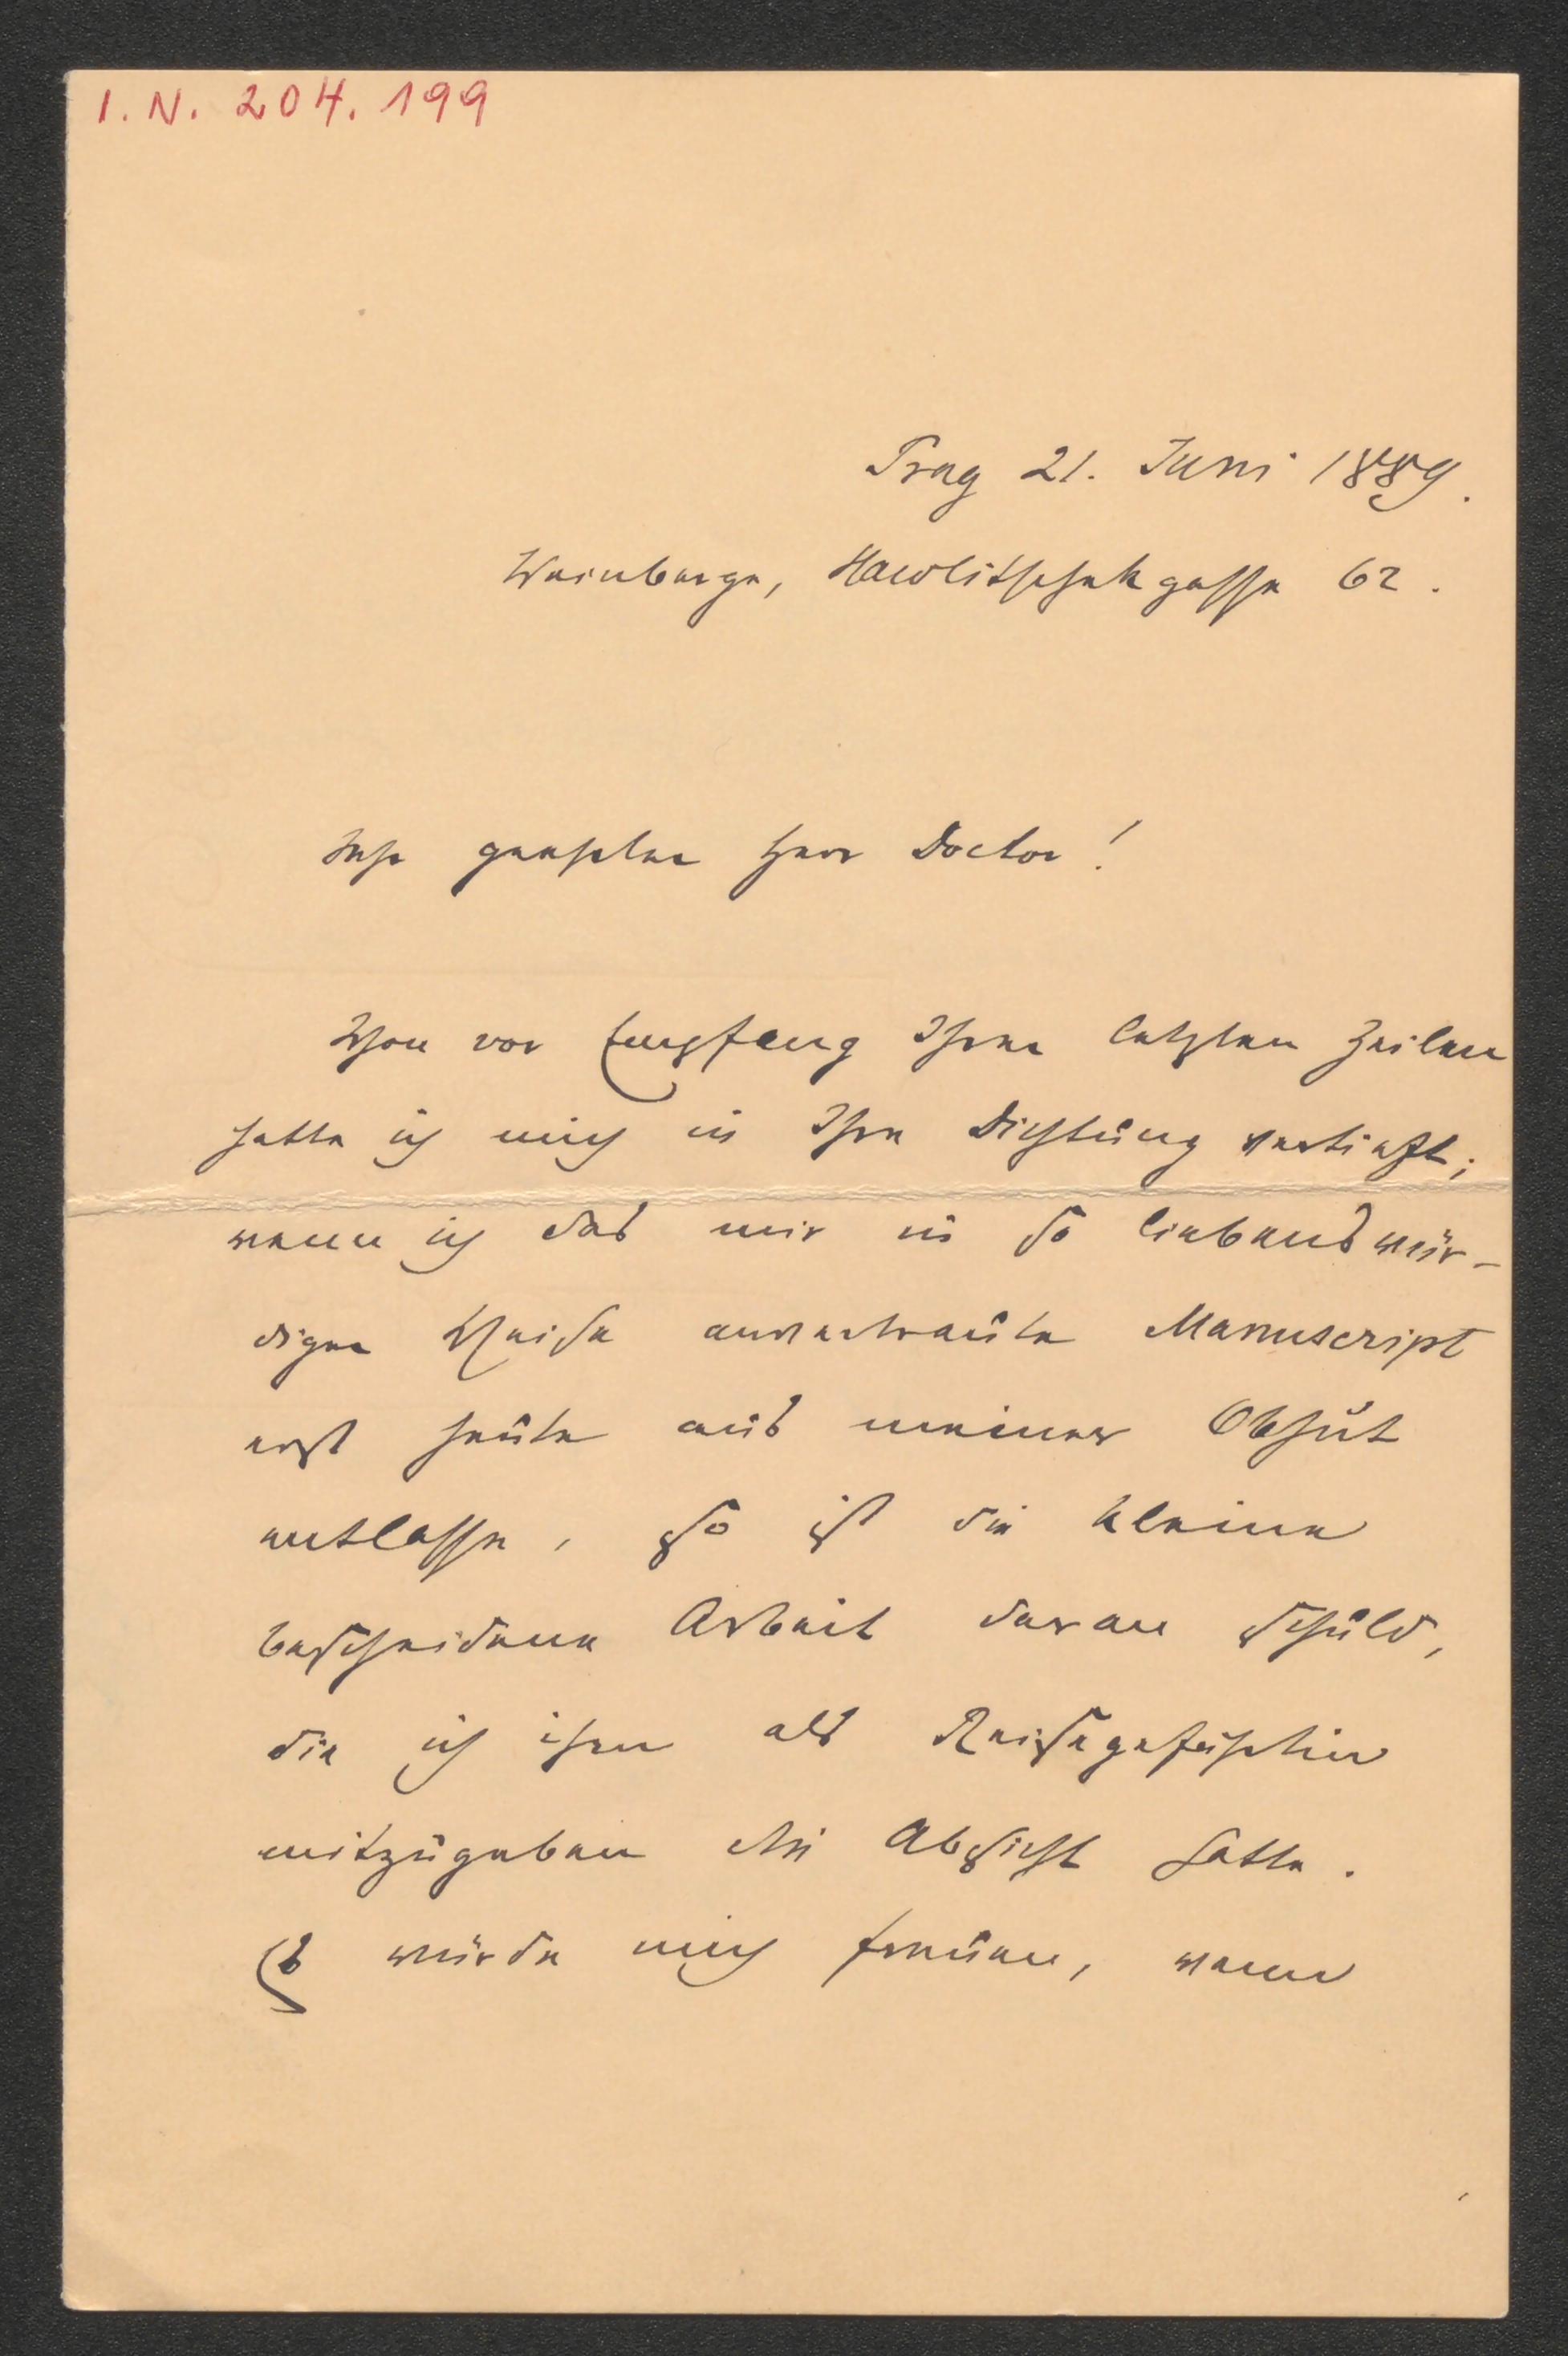 I. N. 204.199
Prag 21. Juni 1889.
Weinberge, Hawlitschekgasse 62.
Sehr geehrter Herr Doctor!
Schon vor Empfang Ihrer letzten Zeilen
hatte ich mich in Ihre Dichtung vertieft;
wenn ich das mir in so liebenswür-
diger Weise anvertraute Manuscript
erst heute aus meiner Obhut
entlasse, so ist die kleine
bescheidene Arbeit daran schuld,
die ich ihm als Reisegefährtin
mitzugeben die Absicht hatte.
Es würde mich freuen, wenn